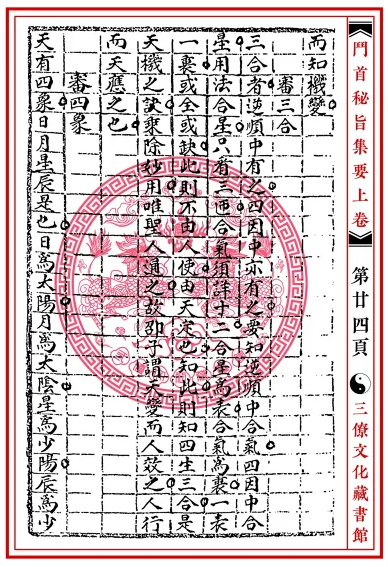 鬥首秘旨集要上卷
第廿四頁
三僚文化藏書館
而知機變
審三合
三合者逆順中有之四因中亦有之要知逆順中合氣四因中合
星用法合星只看三匝合氣須詳十二合星為表合氣為裏一表
一裏或全或缺此則不由人使由天定也知此則知四生三合是
天機之訣乘除妙用唯聖人通之故邵子謂天變而人效之人行
而天應之也
審四象
天有四象日月星辰是也日為太陽月為太陰星為少陽辰為少